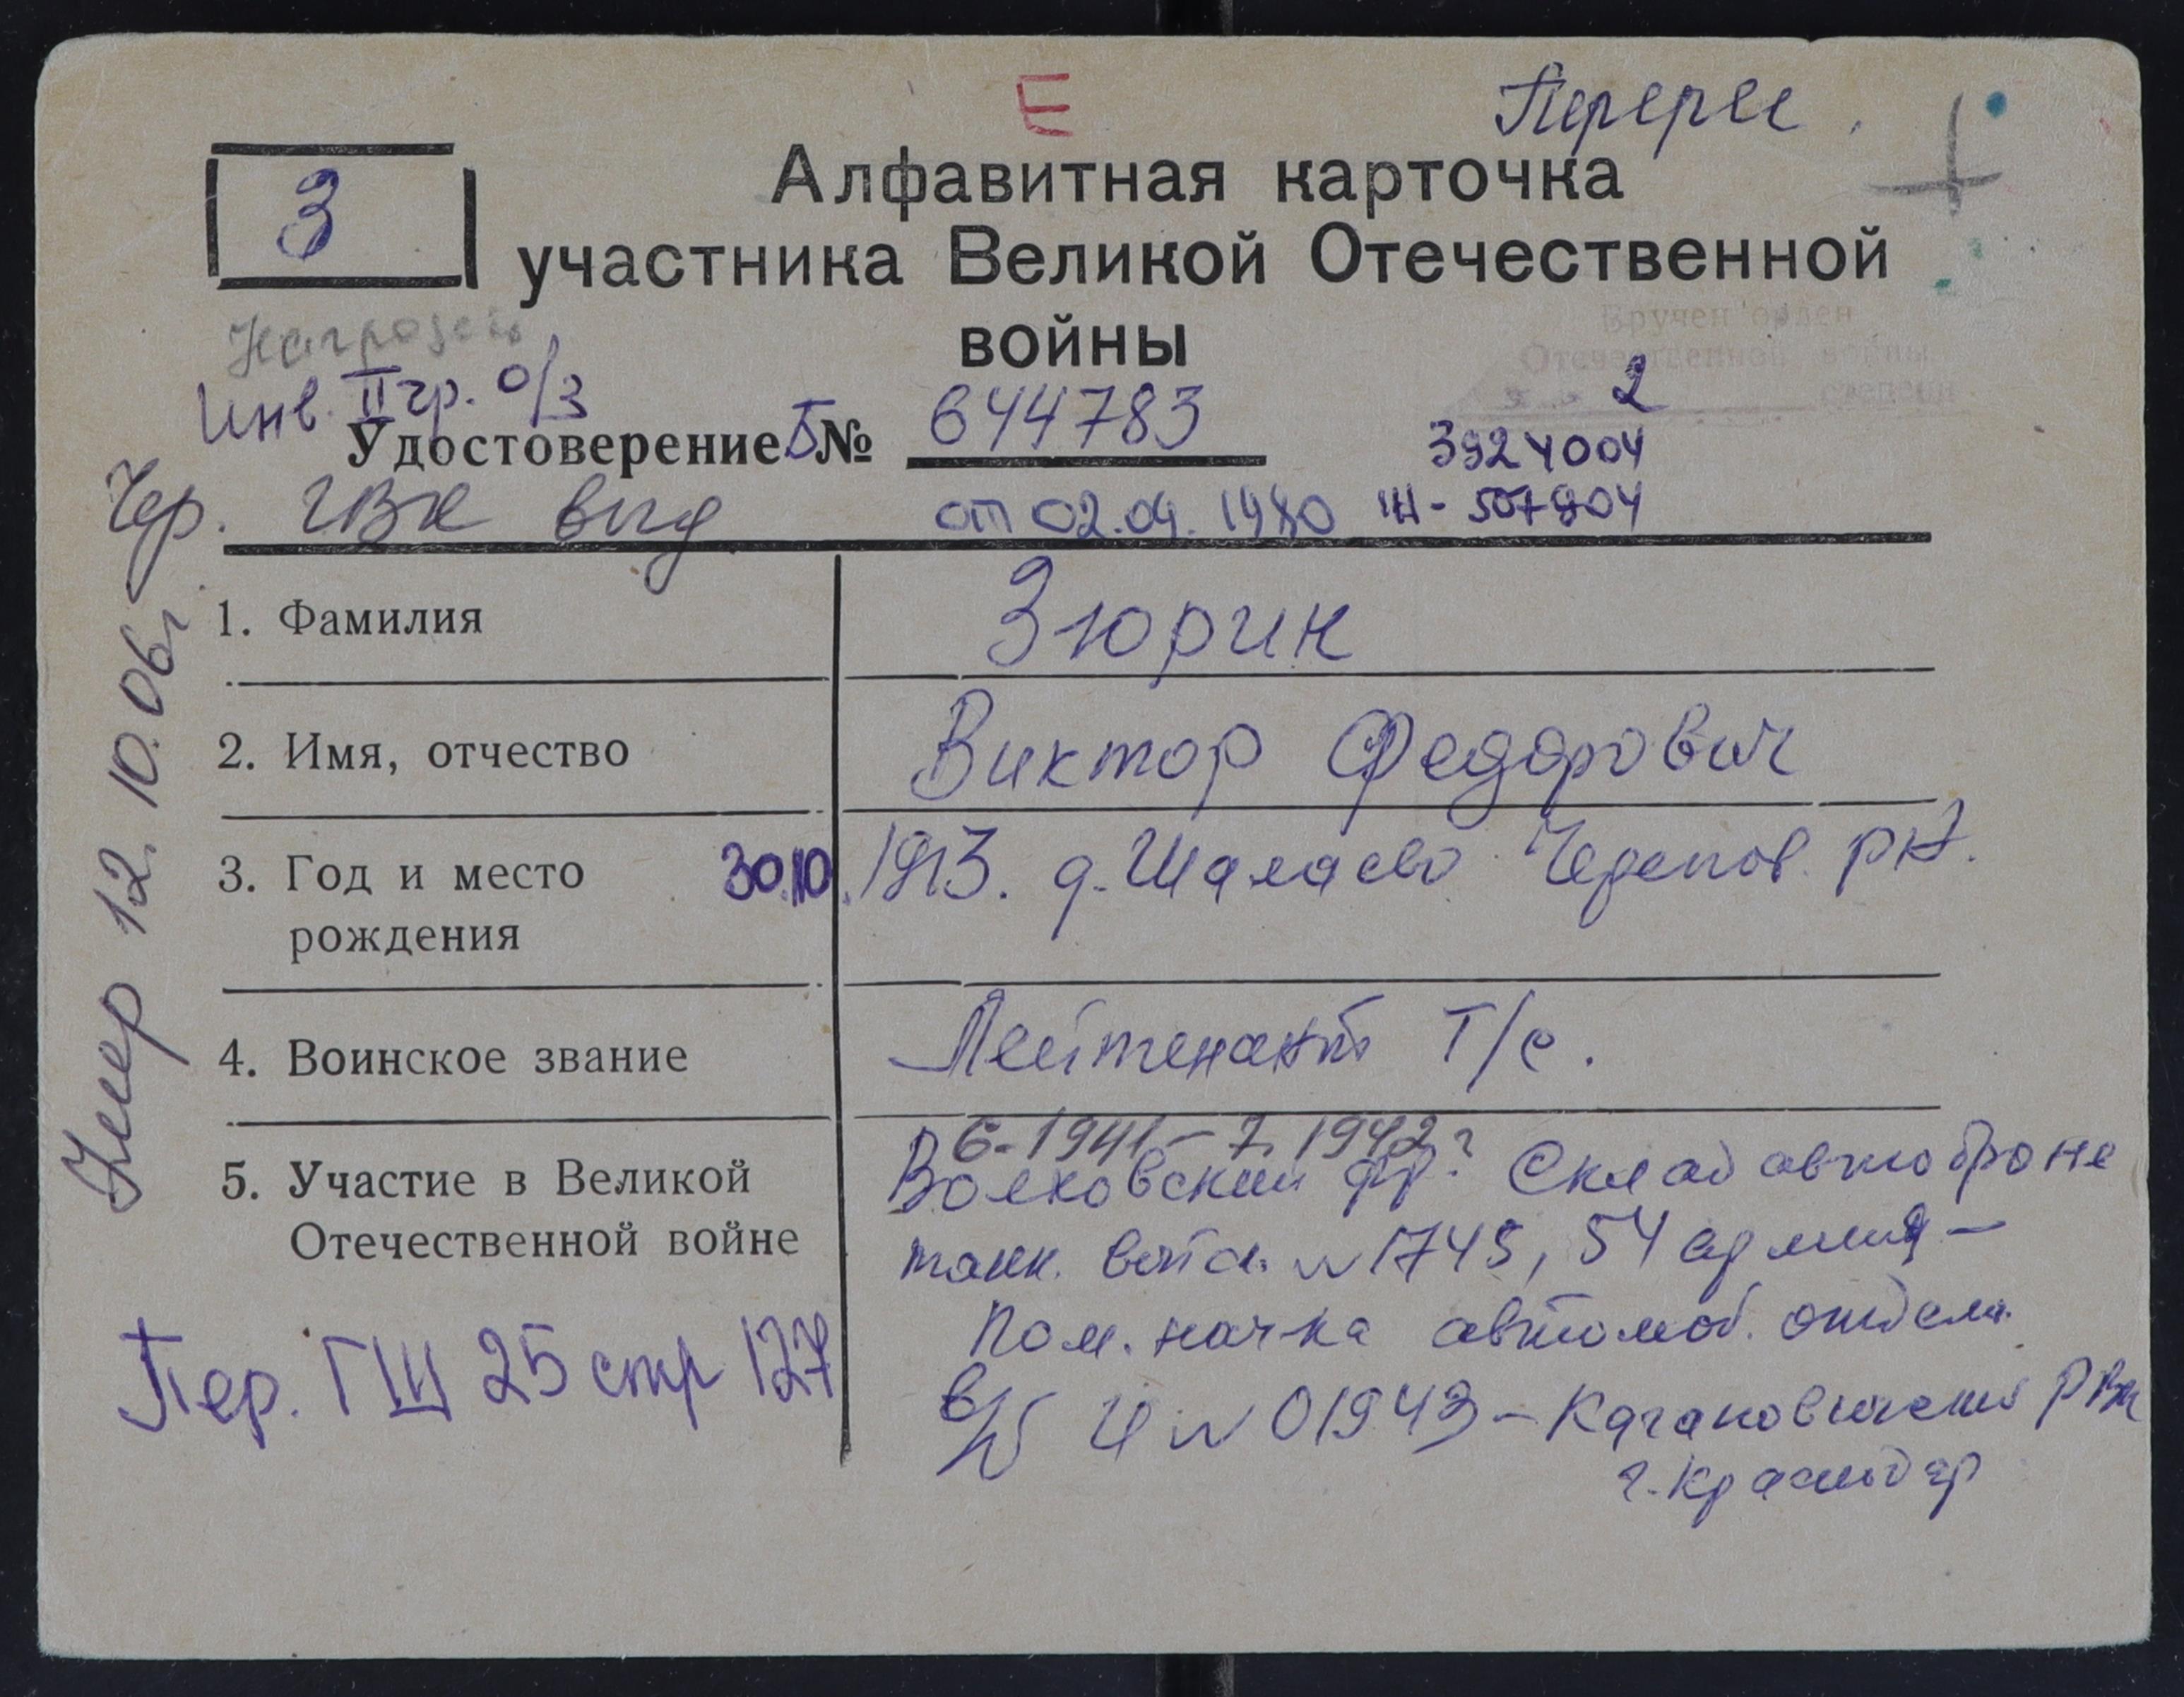 Е
Перерег.
З
Алфавитная карточка
участника Великой Отечественной
войны
Вручен орден
Отечественной войны
2 степени
Награжден
Инв. II гр. о/з
Удостоверение Б № 644783
3924004
Чер. ГВК выд от 02.04.1980
1. Фамилия Зюрин
2. Имя, отчество Виктор Федорович
3. Год и место рождения 30.10.1913. д. Шалаево Черепов. р-н.
4. Воинское звание Лейтенант Т/с.
5. Участие в Великой Отечественной войне
6-1941 – 7.1942 г
Волховский фр. Склад автоброне
танк. войск. № 1745, 54 армия –
Пом. нач-ка автомоб. отдела
в/б Ц № 01943 – Кагановичский РВК
г. Краснодар
Пер. ГШ 25 стр 127
Умер 12.10.06 г